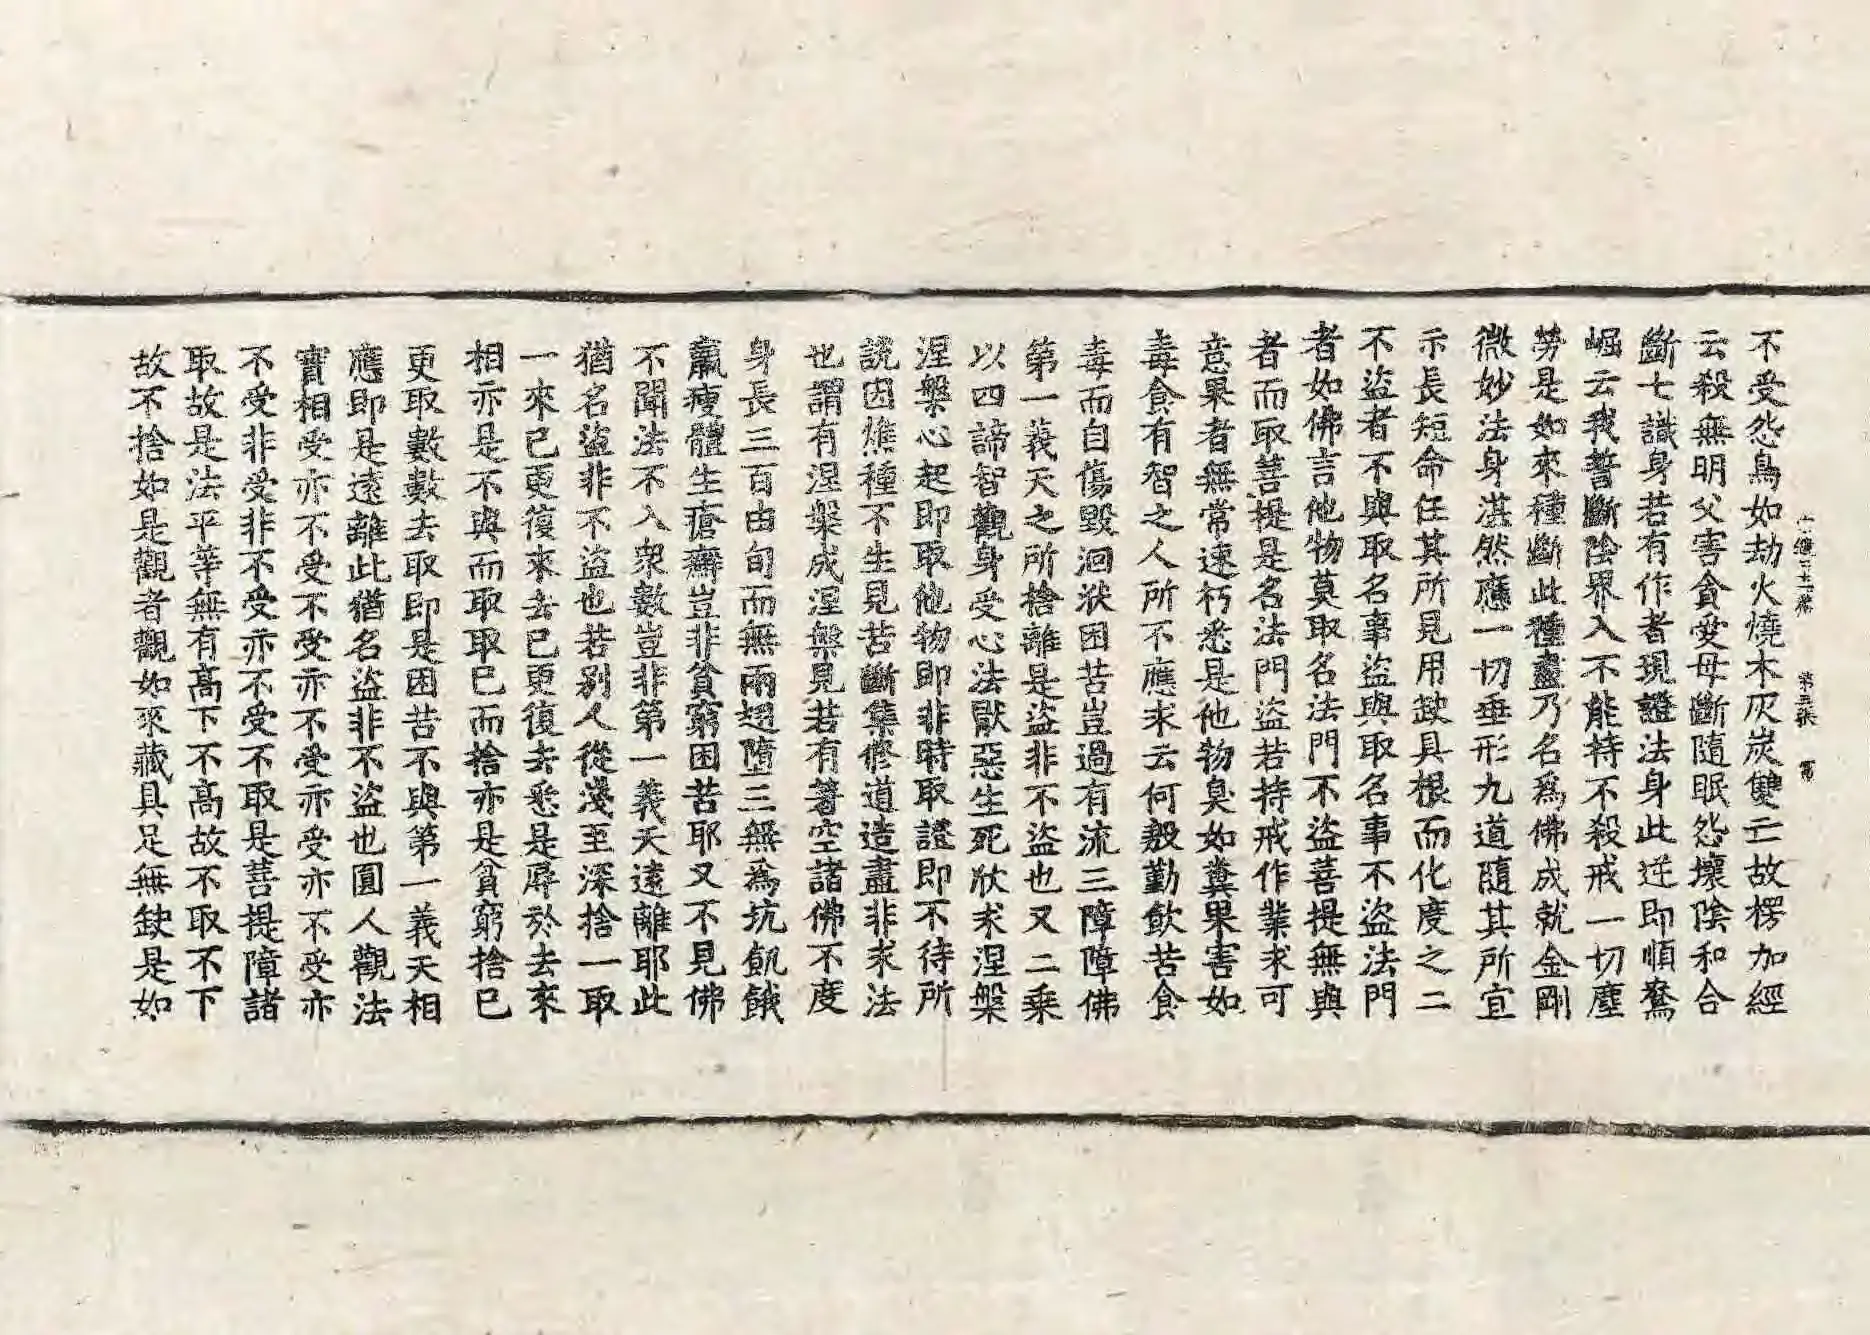 不受怨鳥如劫火燒木灰炭雙亡故楞加經
云殺無明父害貪愛母斷隨眠怨壞陰和合
斷七識身若有作者現證法身此逆即順鴦
崛云我誓斷陰界入不能持不殺戒一切塵
勞是如來種斷此種盡乃名為佛成就金剛
微妙法身湛然應一切垂形九道隨其所宜
示長短命任其所見用缺具根而化度之二
不盜者不與取名事盜與取名事不盜法門
者如佛言他物莫取名法門不盜菩提無與
者而取菩提是名法門盜若持戒作業求可
意果者無常速朽悉是他物臭如糞果害如
毒食有智之人所不應求云何殷勤飲苦食
毒而自傷毀洄洑困苦豈過有流三障障佛
第一義天之所捨離是盜非不盜也又二乘
以四諦智觀身受心法猒惡生死欣求涅槃
涅槃心起即取他物即非時取證即不待所
說因燋種不生見苦斷集修道造盡非求法
也謂有涅槃成涅槃見若有著空諸佛不度
身長三百由旬而無兩翅墮三無為坑飢餓
羸瘦體生瘡癬豈非貧窮困苦耶又不見佛
不聞法不入衆數豈非第一義天遠離耶此
猶名盜非不盜也若別人從淺至深捨一取
一來已更復來去已更復去悉是辱於去來
相亦是不與而取取已而捨亦是貧窮捨已
更取數數去取即是困苦不與第一義天相
應即是遠離此猶名盜非不盜也圓人觀法
實相受亦不受不受亦不受亦受亦不受亦
不受非受非不受亦不受不取是菩提障諸
取故是法平等無有高下不高故不取不下
故不捨如是觀者觀如來藏具足無缺是如